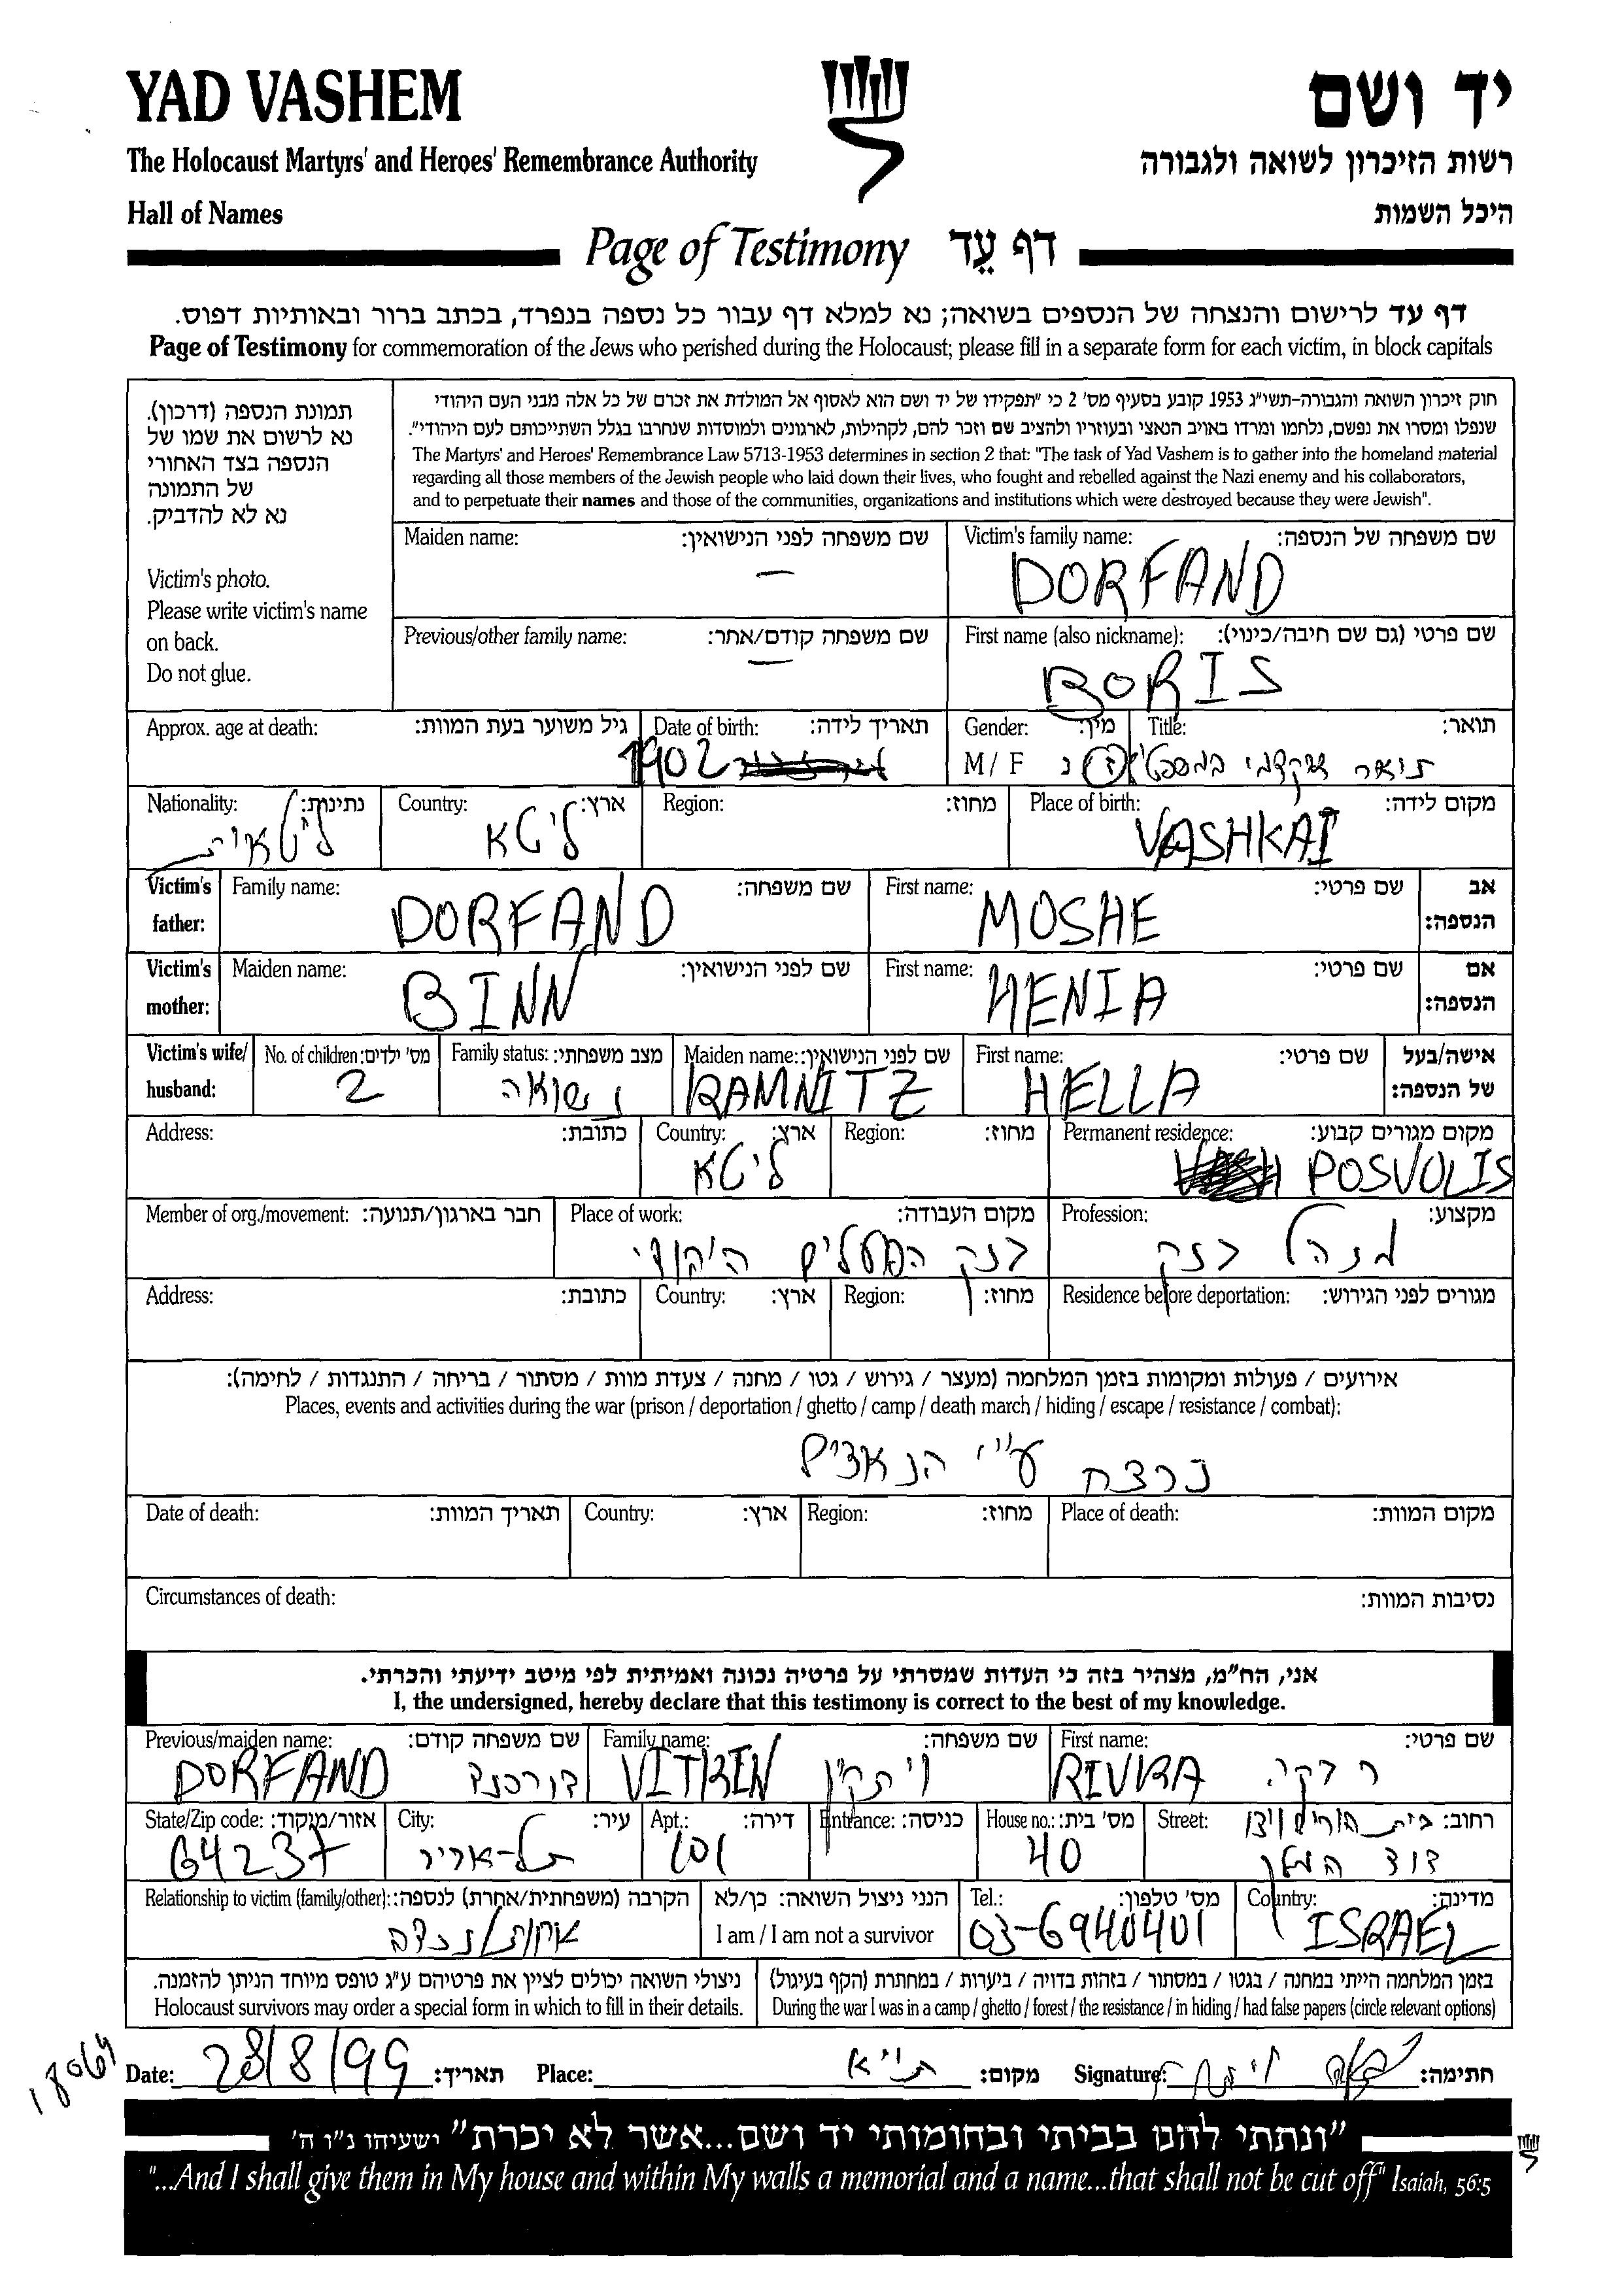 YAD VASHEM
יד ושם
The Holocaust Martyrs' and Heroes' Remembrance Authority
רשות הזיכרון לשואה ולגבורה
Hall of Names
היכל השמות
Page of Testimony דף עֵד
דף עד לרישום והנצחה של הנספים בשואה; נא למלא דף עבור כל נספה בנפרד, בכתב ברור ובאותיות דפוס.
Page of Testimony for commemoration of the Jews who perished during the Holocaust; please fill in a separate form for each victim, in block capitals
תמונת הנספה (דרכון).
נא לרשום את שמו של
הנספה בצד האחורי
של התמונה
נא לא להדביק.
Victim's photo.
Please write victim's name
on back.
Do not glue.
חוק זיכרון השואה והגבורה-תשי"ג 1953 קובע בסעיף מס' 2 כי "תפקידו של יד ושם הוא לאסוף אל המולדת את זכרם של כל אלה מבני העם היהודי
שנפלו ומסרו את נפשם, נלחמו ומרדו באויב הנאצי ובעוזריו ולהציב שם וזכר להם, לקהילות, לארגונים ולמוסדות שנחרבו בגלל השתייכותם לעם היהודי".
The Martyrs' and Heroes' Remembrance Law 5713-1953 determines in section 2 that: "The task of Yad Vashem is to gather into the homeland material
regarding all those members of the Jewish people who laid down their lives, who fought and rebelled against the Nazi enemy and his collaborators,
and to perpetuate their names and those of the communities, organizations and institutions which were destroyed because they were Jewish".
Maiden name: שם משפחה לפני הנישואין: Victim's family name: שם משפחה של הנספה:
— DORFAND
Previous/other family name: שם משפחה קודם/אחר: First name (also nickname): שם פרטי (גם שם חיבה/כינוי):
— BORIS
Approx. age at death: גיל משוער בעת המוות: Date of birth: תאריך לידה: Gender: מין: Title: תואר:
1902 M / F ז נ תואר אקדמי
Nationality: נתינות: Country: ארץ: Region: מחוז: Place of birth: מקום לידה:
ליטאית ליטא VASHKAI
Victim's father: Family name: שם משפחה: First name: שם פרטי: אב הנספה:
DORFAND MOSHE
Victim's mother: Maiden name: שם לפני הנישואין: First name: שם פרטי: אם הנספה:
BINN HENIA
Victim's wife/ husband: No. of children: מס' ילדים: Family status: מצב משפחתי: Maiden name: שם לפני הנישואין: First name: שם פרטי: אישה/בעל של הנספה:
2 נשואה RAMNITZ HELLA
Address: כתובת: Country: ארץ: Region: מחוז: Permanent residence: מקום מגורים קבוע:
ליטא POSVOLIS
Member of org./movement: חבר בארגון/תנועה: Place of work: מקום העבודה: Profession: מקצוע:
בנק הפועלים היהודי מנהל בנק
Address: כתובת: Country: ארץ: Region: מחוז: Residence before deportation: מגורים לפני הגירוש:
אירועים / פעולות ומקומות בזמן המלחמה (מעצר / גירוש / גטו / מחנה / צעדת מוות / מסתור / בריחה / התנגדות / לחימה):
Places, events and activities during the war (prison / deportation / ghetto / camp / death march / hiding / escape / resistance / combat):
נרצח ע"י הנאצים
Date of death: תאריך המוות: Country: ארץ: Region: מחוז: Place of death: מקום המוות:
Circumstances of death: נסיבות המוות:
אני, הח"מ, מצהיר בזה כי העדות שמסרתי על פרטיה נכונה ואמיתית לפי מיטב ידיעתי והכרתי.
I, the undersigned, hereby declare that this testimony is correct to the best of my knowledge.
Previous/maiden name: שם משפחה קודם: Family name: שם משפחה: First name: שם פרטי:
DORFAND דורפנד VITKIN ויתקין RIVKA רבקה
State/Zip code: אזור/מיקוד: City: עיר: Apt.: דירה: Entrance: כניסה: House no.: מס' בית: Street: רחוב:
64237 תל-אביב 101 40 בית הורים ויצו
דוד המלך
Relationship to victim (family/other): הקרבה (משפחתית/אחרת) לנספה: הנני ניצול השואה: כן/לא Tel.: מס' טלפון: Country: מדינה:
אחות/נכדה I am / I am not a survivor 03-6940401 ISRAEL
ניצולי השואה יכולים לציין את פרטיהם ע"ג טופס מיוחד הניתן להזמנה.
Holocaust survivors may order a special form in which to fill in their details.
בזמן המלחמה הייתי במחנה / בגטו / במסתור / בזהות בדויה / ביערות / במחתרת (הקף בעיגול)
During the war I was in a camp / ghetto / forest / the resistance / in hiding / had false papers (circle relevant options)
18064
Date: 28/8/99 תאריך: Place: ת"א מקום: Signature: חתימה:
"ונתתי להם בביתי ובחומותי יד ושם...אשר לא יכרת" ישעיהו נ"ו ה'
"...And I shall give them in My house and within My walls a memorial and a name...that shall not be cut off" Isaiah, 56:5